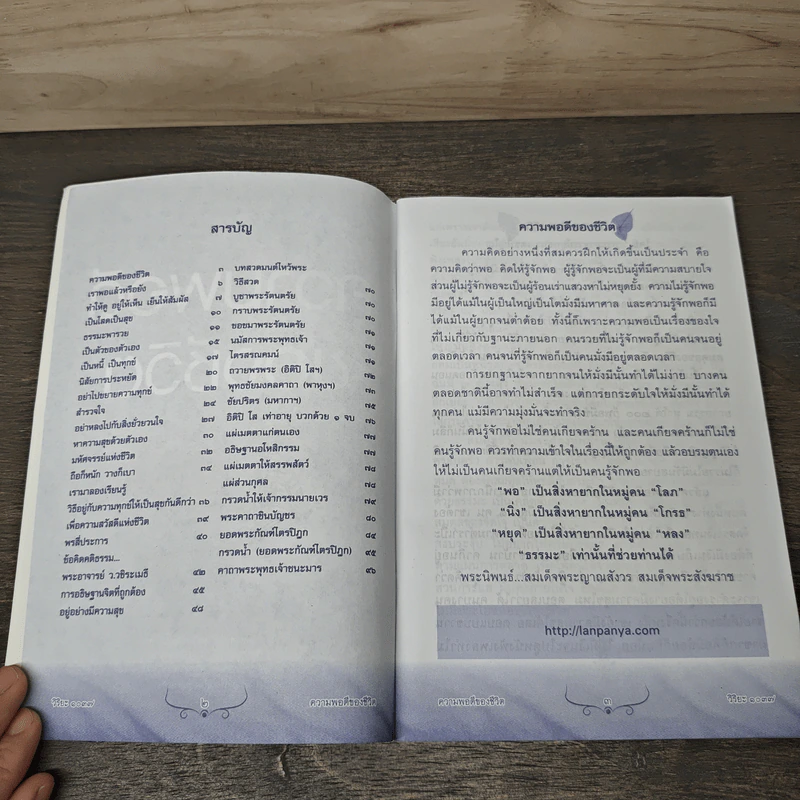 สารบัญ
ความพอดีของชีวิต ๓
เราพอแล้วหรือยัง ๖
ทำให้ดู อยู่ให้เห็น เย็นให้สัมผัส ๗
เป็นโสดเป็นสุข ๑๐
ธรรมะพารวย
เป็นตัวของตัวเอง ๑๕
เป็นหนี้ เป็นทุกข์ ๑๗
นิสัยการประหยัด ๒๐
อย่าไปขยายความทุกข์ ๒๒
สำรวจใจ ๒๔
อย่าหลงไปกับสิ่งยั่วยวนใจ ๒๗
หาความสุขด้วยตัวเอง ๓๐
มหัศจรรย์แห่งชีวิต ๓๒
ถือก็หนัก วางก็เบา ๓๔
เรามาลองเรียนรู้
วิธีอยู่กับความทุกข์ให้เป็นสุขกันดีกว่า ๓๖
เพื่อความสวัสดีแห่งชีวิต ๓๙
พรสี่ประการ ๔๐
ข้อคิดคติธรรม...
พระอาจารย์ ว.วชิรเมธี ๔๒
การอธิษฐานจิตที่ถูกต้อง ๔๕
อยู่อย่างมีความสุข ๔๘
บทสวดมนต์ไหว้พระ
วิธีสวด ๗๐
บูชาพระรัตนตรัย ๗๐
กราบพระรัตนตรัย ๗๐
ขอขมาพระรัตนตรัย ๗๑
นมัสการพระพุทธเจ้า ๗๑
ไตรสรณคมน์ ๗๑
ถวายพรพระ (อิติปิ โสฯ) ๗๒
พุทธชัยมงคลคาถา (พาหุงฯ) ๗๓
ชัยปริตร (มหากาฯ) ๗๕
อิติปิ โส เท่าอายุ บวกด้วย ๑ จบ ๗๖
แผ่เมตตาแก่ตนเอง ๗๗
อธิษฐานอโหสิกรรม ๗๗
แผ่เมตตาให้สรรพสัตว์ ๗๗
แผ่ส่วนกุศล ๗๘
กรวดน้ำให้เจ้ากรรมนายเวร ๗๙
พระคาถาชินบัญชร ๘๐
ยอดพระกัณฑ์ไตรปิฎก ๘๔
กรวดน้ำ (ยอดพระกัณฑ์ไตรปิฎก) ๙๕
คาถาพระพุทธเจ้าชนะมาร ๙๖
วิริยะ ๑๐๓๗
๒
ความพอดีของชีวิต
ความพอดีของชีวิต
ความคิดอย่างหนึ่งที่สมควรฝึกให้เกิดขึ้นเป็นประจำ คือ
ความคิดว่าพอ คิดให้รู้จักพอ ผู้รู้จักพอจะเป็นผู้ที่มีความสบายใจ
ส่วนผู้ไม่รู้จักพอจะเป็นผู้ร้อนเร่าแสวงหาไม่หยุดยั้ง ความไม่รู้จักพอ
มีอยู่ได้แม้ในผู้เป็นใหญ่เป็นโตมั่งมีมหาศาล และความรู้จักพอก็มี
ได้แม้ในผู้ยากจนต่ำต้อย ทั้งนี้ก็เพราะความพอเป็นเรื่องของใจ
ที่ไม่เกี่ยวกับฐานะภายนอก คนรวยที่ไม่รู้จักพอก็เป็นคนจนอยู่
ตลอดเวลา คนจนที่รู้จักพอก็เป็นคนมั่งมีอยู่ตลอดเวลา
การยกฐานะจากยากจนให้มั่งมีนั้นทำได้ไม่ง่าย บางคน
ตลอดชาตินี้อาจทำไม่สำเร็จ แต่การยกระดับใจให้มั่งมีนั้นทำได้
ทุกคน แม้มีความมุ่งมั่นจะทำจริง
คนรู้จักพอไม่ใช่คนเกียจคร้าน และคนเกียจคร้านก็ไม่ใช่
คนรู้จักพอ ควรทำความเข้าใจในเรื่องนี้ให้ถูกต้อง แล้วอบรมตนเอง
ให้ไม่เป็นคนเกียจคร้านแต่ให้เป็นคนรู้จักพอ
“พอ” เป็นสิ่งหายากในหมู่คน “โลภ”
“นิ่ง” เป็นสิ่งหายากในหมู่คน “โกรธ”
“หยุด” เป็นสิ่งหายากในหมู่คน “หลง”
“ธรรมะ” เท่านั้นที่ช่วยท่านได้
พระนิพนธ์...สมเด็จพระญาณสังวร สมเด็จพระสังฆราช
http://lanpanya.com
ความพอดีของชีวิต
๓
วิริยะ ๑๐๓๗